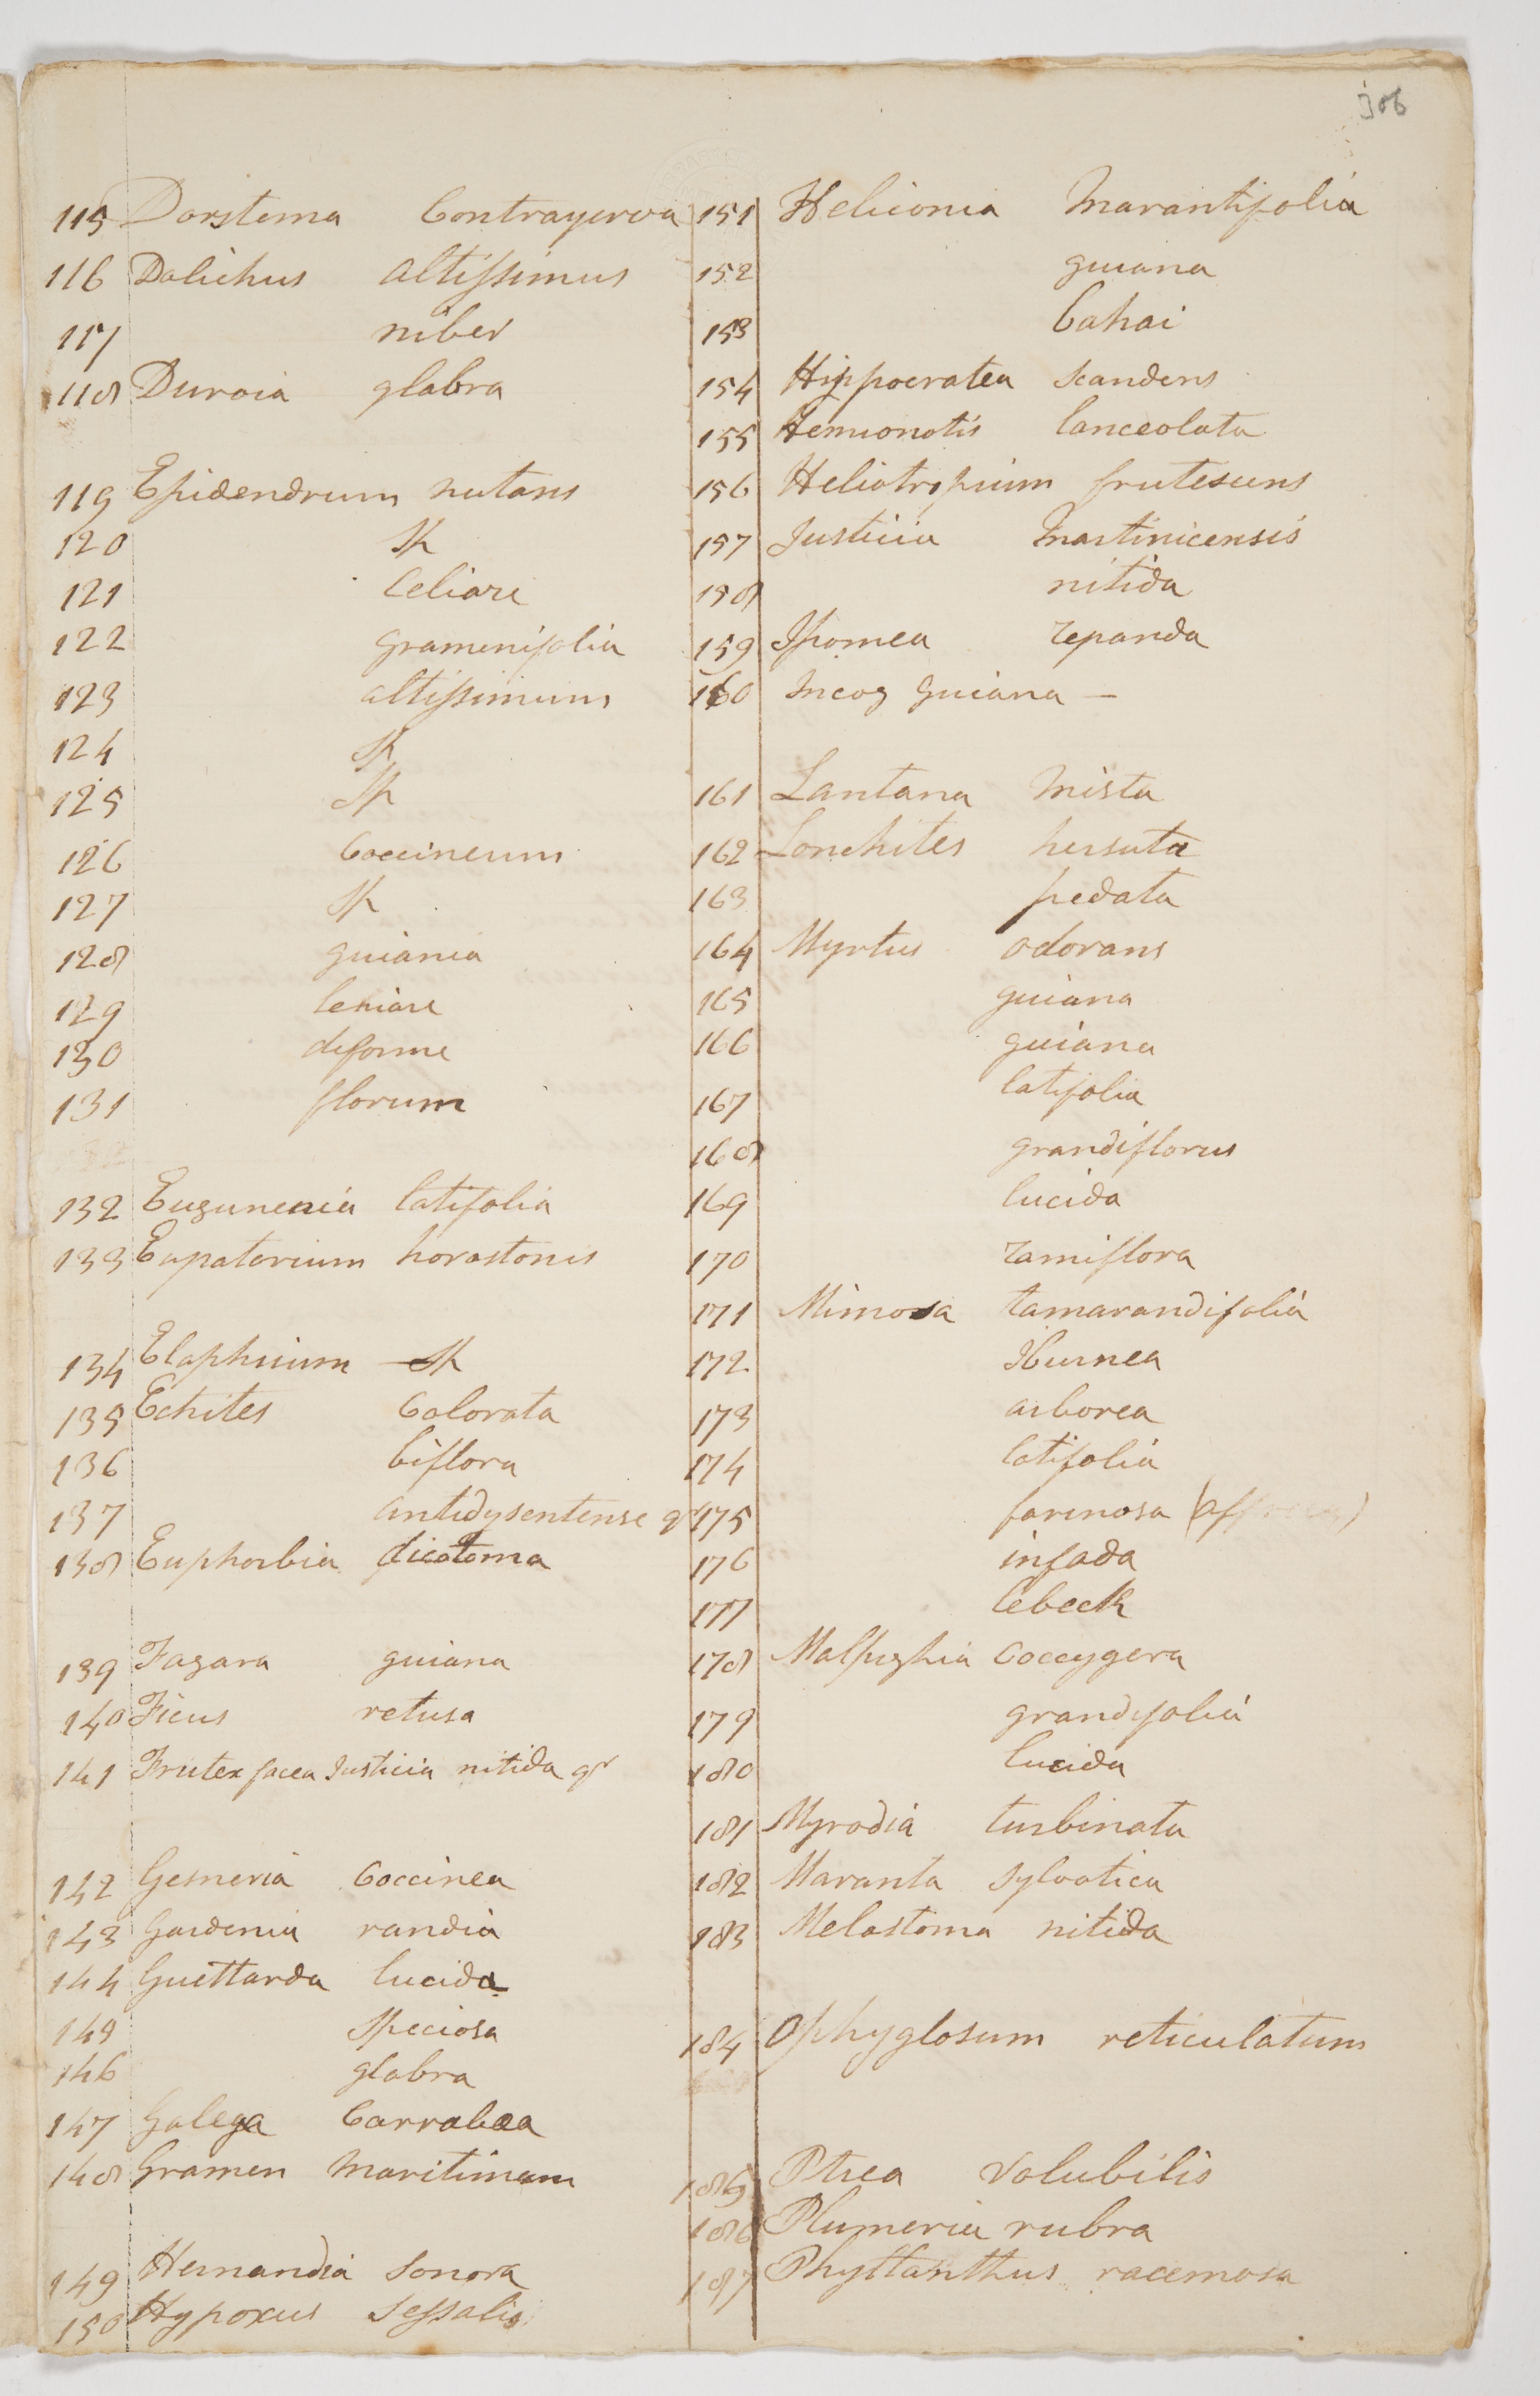 306
115 Dorstema Contrayerva
116 Dolichus altissimus
117 niber
118 Duroia glabra
119 Epidendrum nutans
120 Sp
121 Celiare
122 gramenifolia
123 altissimum
124 Sp
125 Sp
126 Coccineum
127 Sp
128 guiania
129 leniare
130 deforme
131 florum
132 Eugunenia latifolia
133 Eupatorium horastonis
134 Elaphrium Sp
135 Echites Colorata
136 biflora
137 antidysentense qr
138 Euphorbia dicotoma
139 Fagara guiana
140 Ficus retusa
141 Frutex facea Justicia nitida qr
142 Gesneria Coccinea
143 Gardenia randia
144 Guettarda lucida
145 Speciosa
146 glabra
147 Galega Carrabaa
148 Gramen Maritimum
149 Hernandia Sonora
150 Hypoxus Sessalis
151 Heliconia Marantifolia
152 guiana
153 Cahai
154 Hippocratea Scandens
155 Hemionotis lanceolata
156 Heliotropium frutescens
157 Justicia Martinicensis
158 nitida
159 Ipomea repanda
160 Incog guiana —
161 Lantana Mista
162 Lonchites hersuta
163 pedata
164 Myrtus odorans
165 guiana
166 guiana
167 latifolia
168 grandiflorus
169 lucida
170 ramiflora
171 Mimosa tamarandifolia
172 Iburnea
173 arborea
174 latifolia
175 farinosa
176 infada
177 lebeck
178 Malpighia Coccygera
179 grandifolia
180 lucida
181 Myrodia turbinata
182 Maranta Sylvatica
183 Melastoma nitida
184 Ophyglosum reticulatum
185 Ptrea Volubilis
186 Plumeria rubra
187 Phyllanthus racemosa